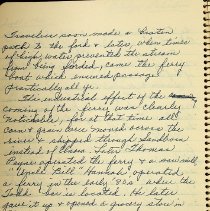 Travelers soon made a beaten
path to the ford & later, when times
of high water prevented the stream
from being forded, came the ferry
boat which insured passage
practically all yr.
The industrial effect of the
coming of the ferry was clearly
noticeable, for at that time all
corn & grain were moved across the
river & shipped through
instead of Later Thomas
Payne operated the ferry & a saw mill.
"Uncle Bill" Hannah operated
a ferry in the early "80s", where the
is located. He later
gave it up & opened a grocery store in